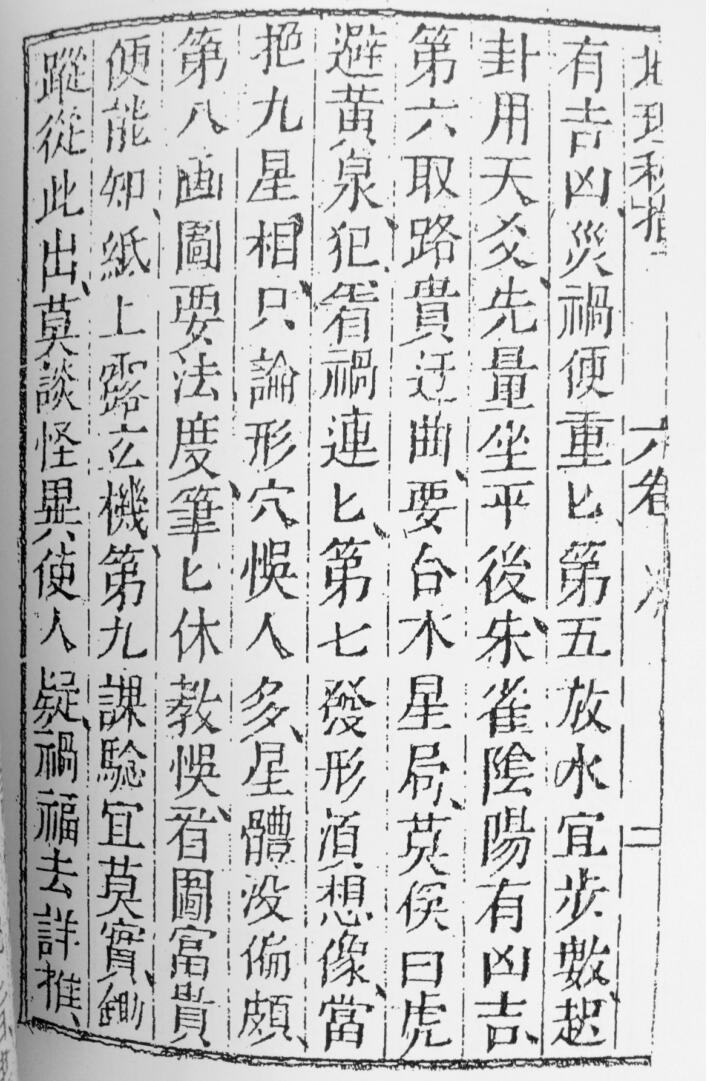 地理
卷
二
有吉凶災禍便重匕第五放水宜步數起、
卦用天爻、先量坐平後朱、雀陰陽有凶吉、
第六取路貴迂曲、要合木星局、莫俟曰虎
避黃泉、犯着禍連匕、第七發形湏想像、當
把九星相、只論形穴悞人多、星體没偏頗、
第八画圖要法度、筆匕休教悞、看圖富貴
便能知、紙上露玄機、第九課驗宜莫實、鋤
蹤從此出、莫談怪異使人疑、禍福去詳推、